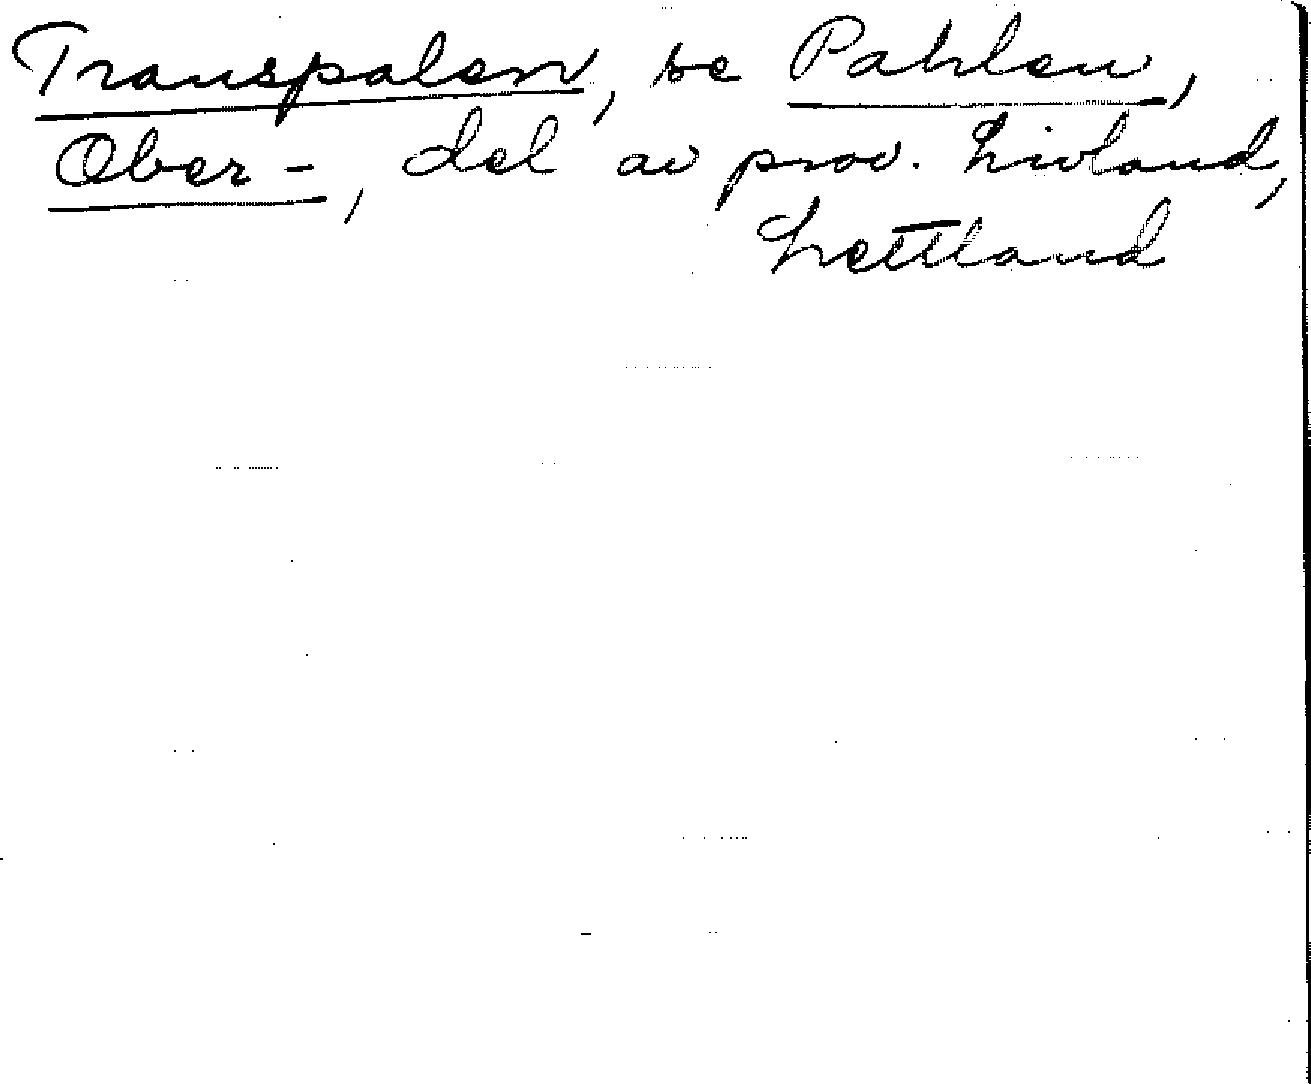 Transpalen, se Pahlen,
Ober-, del av prov. Livland,
Lettland